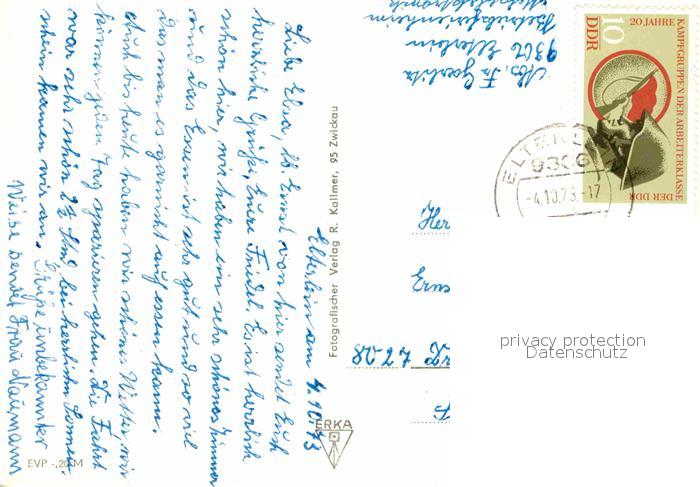 Elterlein am 4.10.73
Liebe Elsa, lb. Ernst von hier sendet Euch
herrliche Grüße, Eure Friedl. Es ist herrlich
schön hier, wir haben ein sehr schönes Zimmer
und das Essen ist sehr gut und so viel
das man es garnicht aufessen kann.
Auch bis heute haben wir schönes Wetter, wir
können jeden Tag spazieren gehen. Die Fahrt
war sehr schön 2½ Std bei herrlichen Sonnen-
schein kamen wir an. Grüße unbekannter
Weise sendet Frau Naumann
Abs. Fr. Goerlitz
9302 Elterlein
Betriebsferienheim
Fotografischer Verlag R. Kallmer, 95 Zwickau
ERKA
EVP -,20 M
20 JAHRE KAMPFGRUPPEN DER ARBEITERKLASSE DER DDR
10
DDR
ELTERLEIN
9306
-4.10.73.-17
Her
privacy protection
Datenschutz